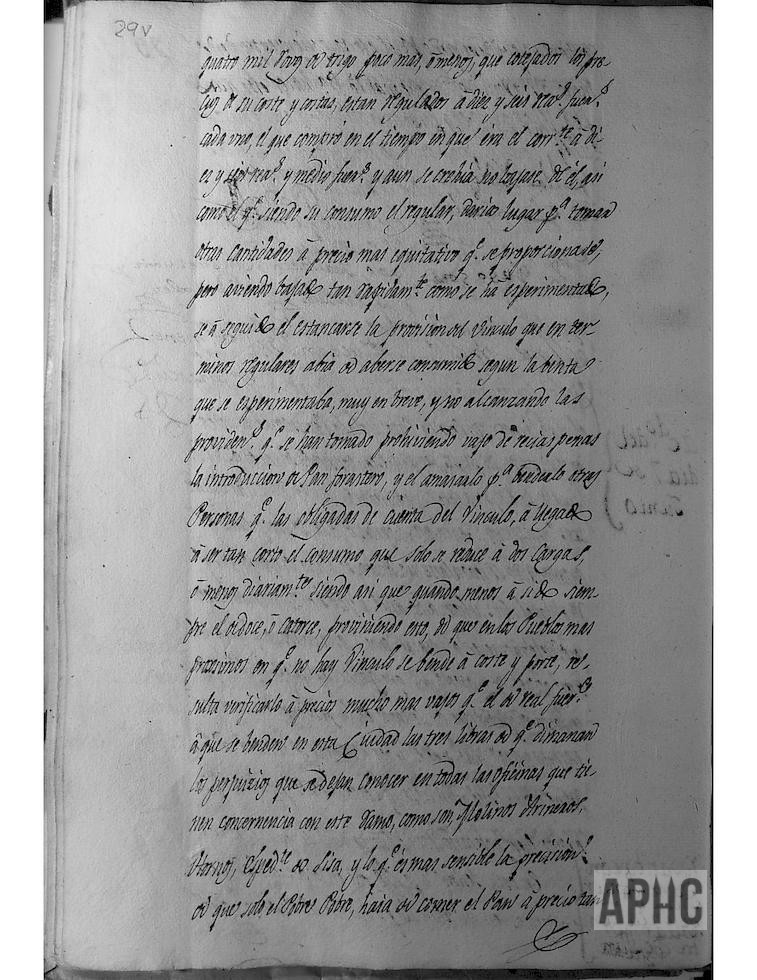 29v
quatro mil Robos de trigo poco mas, ò menos, que cotejados los pre-
cios de su coste y costas, estan regulados à diez y seis rea.s fuer.s
cada uno, el que compro en el tiempo en que era el corr.te à di-
ez y seis rea.s y medio fuer.s y aun se crehia no bajase de él, asi
como el q.e siendo su consumo el regular, daria lugar p.a tomar
otras cantidades à precio mas equitativo q.e se proporcionase,
pero aviendo bajado tan rapidam.te como se hà esperimentado,
se à seguido el estancarse la provision del Vinculo que en ter-
minos regulares abia de aberse consumido segun la benta
que se esperimentaba, muy en breve, y no alcanzando las
providen.s q.e se han tomado prohiviendo vajo de recias penas
la introduccion de Pan forastero, y el amasarlo p.a benderlo otras
Personas q.e las obligadas de cuenta del Vinculo, à llegado
à ser tan corto el consumo que solo se reduce à dos Cargas,
ò menos diariam.te siendo asi que quando menos à sido siem-
pre el de doce, ò catorce, proviniendo esto, de que en los Pueblos mas
procsimos en q.e no hay Vinculo se bende à coste y porte, re-
sulta verificarlo à precios mucho mas vajos q.e el de real fuer.e
à que se benden en esta Ciudad las tres libras de q.e dimanan
los perjuizios que se dejan conocer en todas las oficinas que tie-
nen concernencia con este Ramo, como son, Molinos Arineros,
Hornos, Exped.te de Sisa, y lo q.e es mas sensible la precision
de que solo el Pobre Pobre, haia de comer el Pan à precio tan
APHC